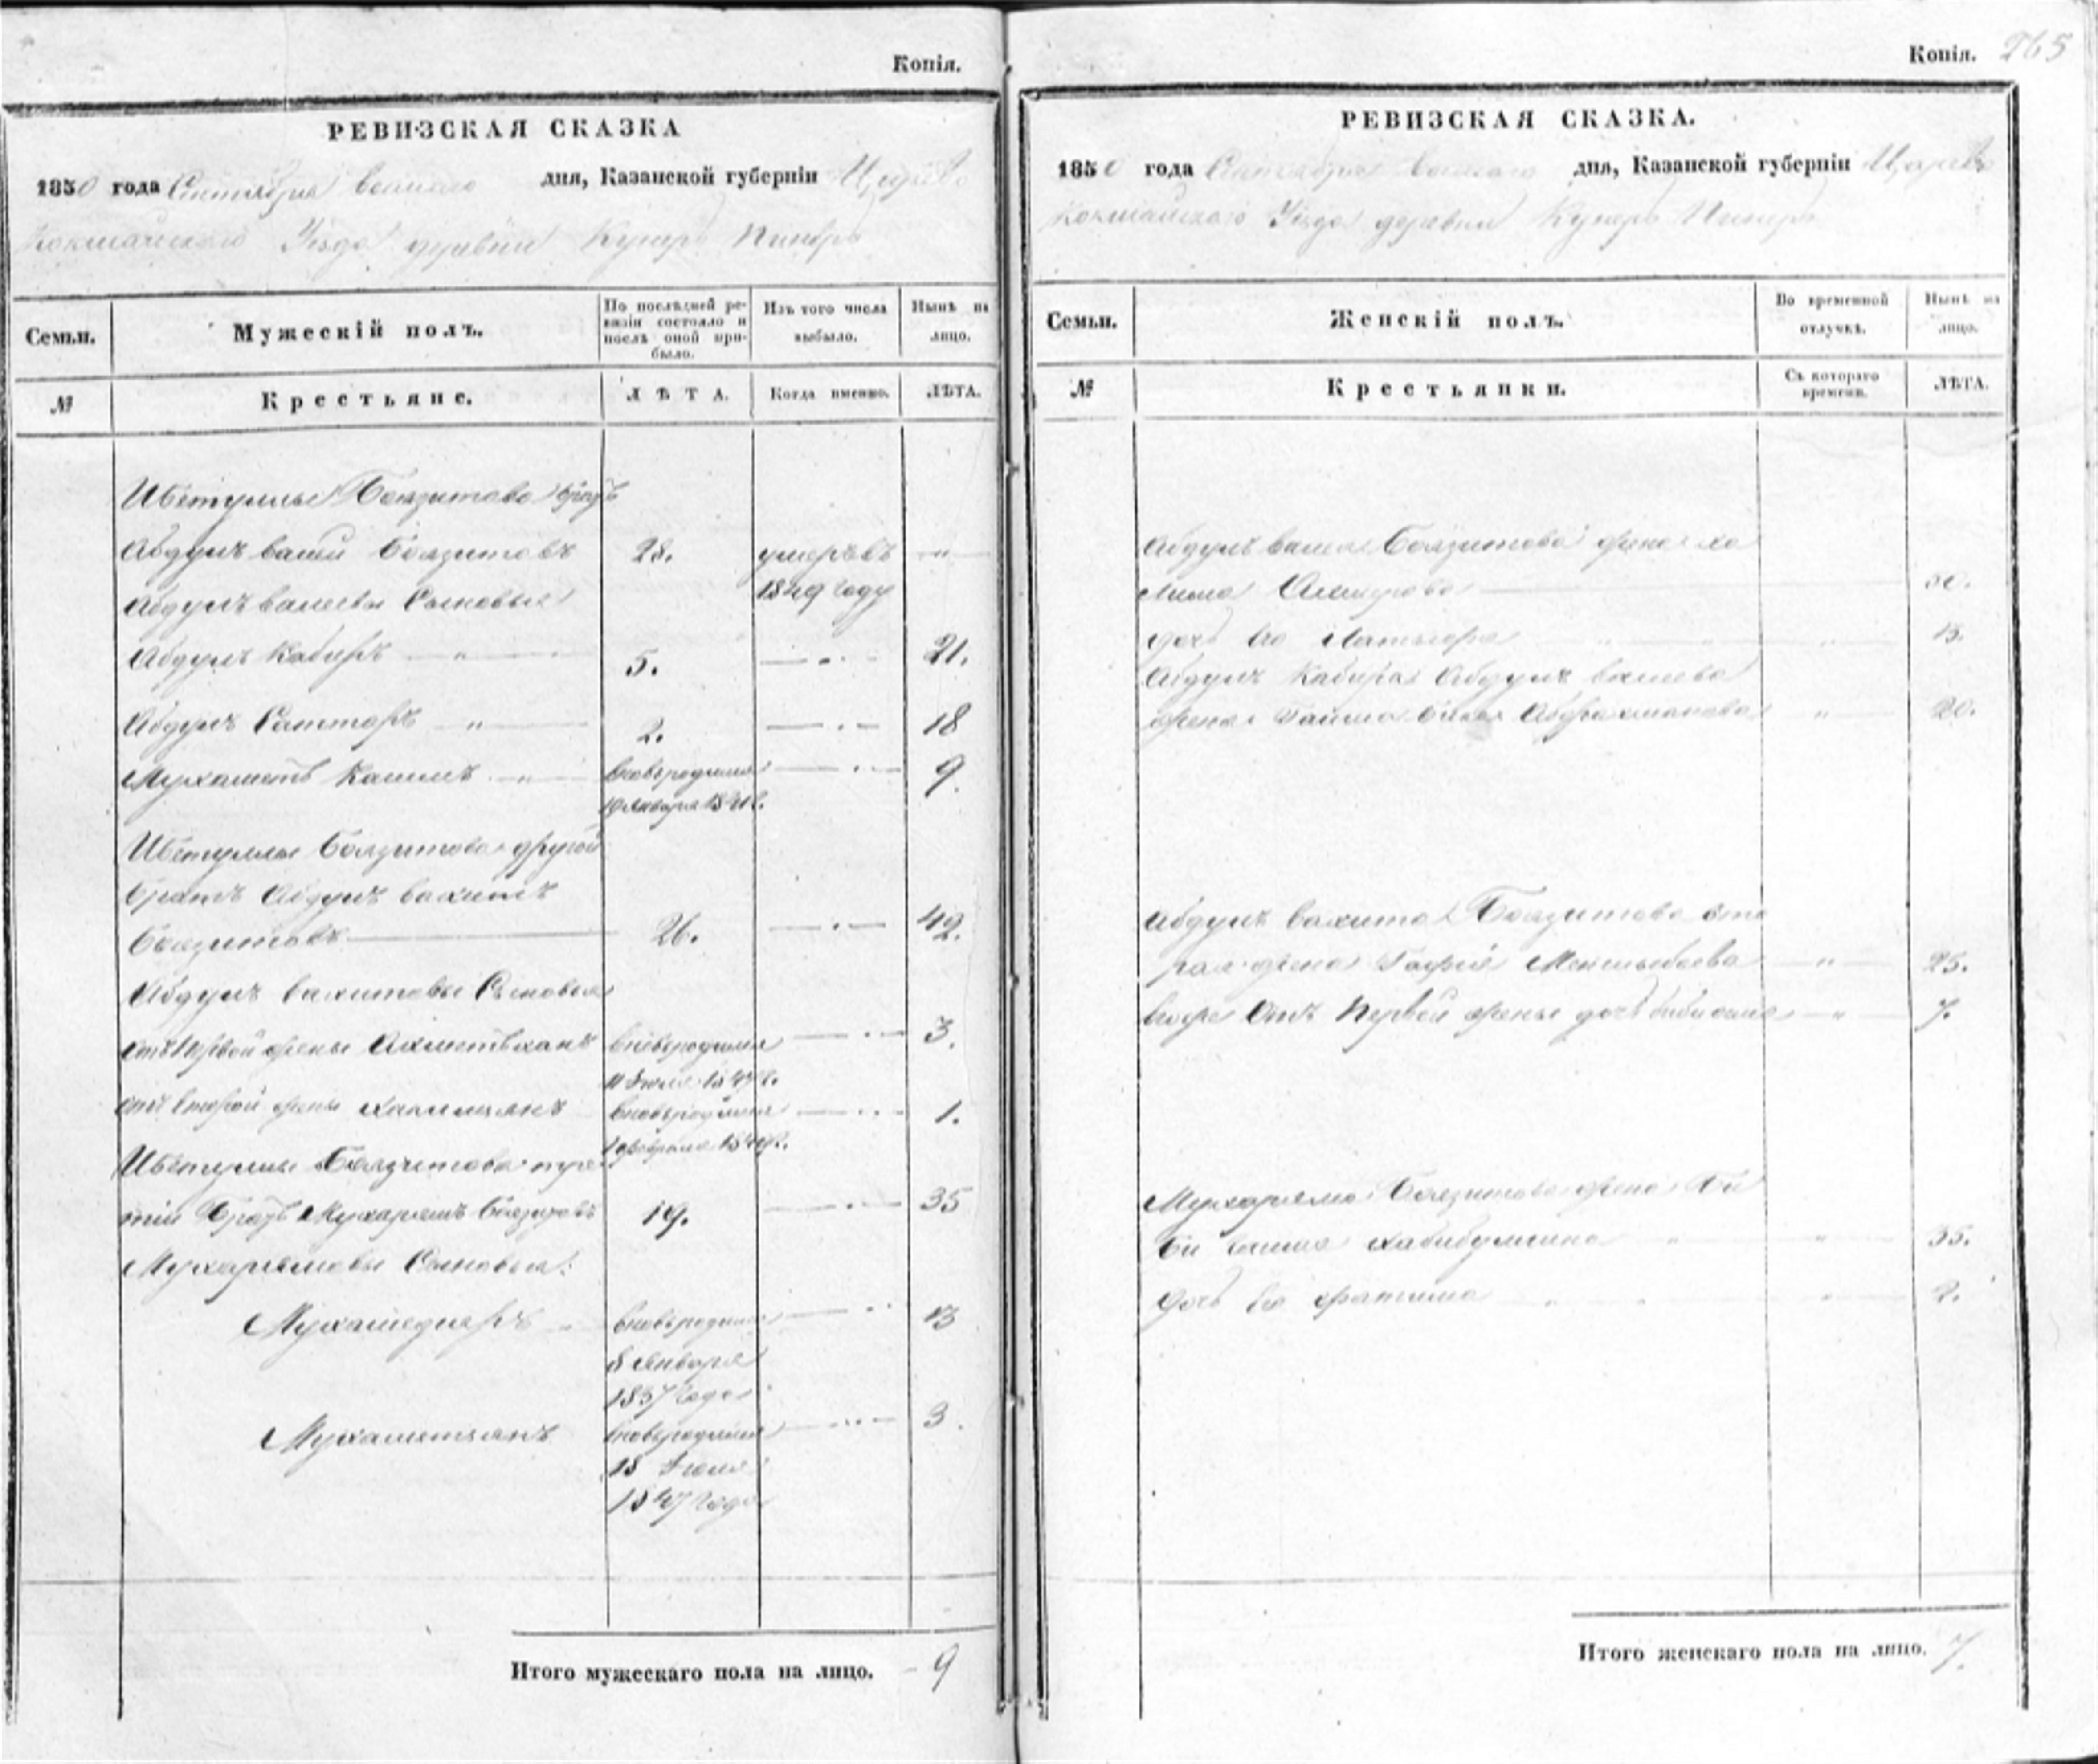 Копія.
РЕВИЗСКАЯ СКАЗКА
1850 года Сентября дня, Казанской губерніи Царево
кокшайскаго Уезда деревни Кугеръ
Семьи.
Мужескій полъ.
По послѣдней ре-
визіи состояло и
послѣ оной при-
было.
Изъ того числа
выбыло.
Нынѣ на
лицо.
№
Крестьяне.
ЛѢТА.
Когда именно.
ЛѢТА.
Ибетуллы Баязитова братъ
Абдулъ вали Баязитовъ 28. умеръ въ "
Абдулъ валиевы Сыновья 1849 году
Абдулъ Кабиръ " 5. 21.
Абдулъ Саттаръ " 2. 18
Мухаметъ Калимъ " вновьродился 9.
Января 1841г.
Ибетуллы Баязитова другой
братъ Абдулъ вахитъ
Баязитовъ 26. 42.
Абдулъ вахитовы Сыновья
отъ первой жены Ахметьханъ вновьродился 3.
Июля 1847г.
отъ второй жены вновьродился 1.
февраля 1849г.
Ибетуллы Баязитова тре
тій братъ Мухарямъ Баязитовъ 19. 35
Мухарямовы Сыновья:
Мухамедъяръ вновьродился 13
8 января
1837 года
Мухаметьянъ вновьродился 3.
18 Июля
1847 года
Итого мужескаго пола на лицо. 9
Копія. 265
РЕВИЗСКАЯ СКАЗКА.
1850 года Сентября дня, Казанской губерніи Царево
кокшайскаго Уезда деревни Кугеръ
Семьи.
Женскій полъ.
Во временной
отлучкѣ.
Нынѣ на
лицо.
№
Крестьянки.
Съ котораго
времени.
ЛѢТА.
Абдулъ вали Баязитова жена Ха
лима 50.
дочь его " 13.
Абдулъ Кабира Абдулъ валиева
жена Абдрахманова " 20.
Абдулъ вахита Баязитова вто
рая жена Менглыбаева " 25.
вогоже отъ первой жены дочь " 7.
Мухаряма Баязитова жена Би
би Хабибуллина " " 35.
дочь его фатима " " " 2.
Итого женскаго пола на лицо. 7.